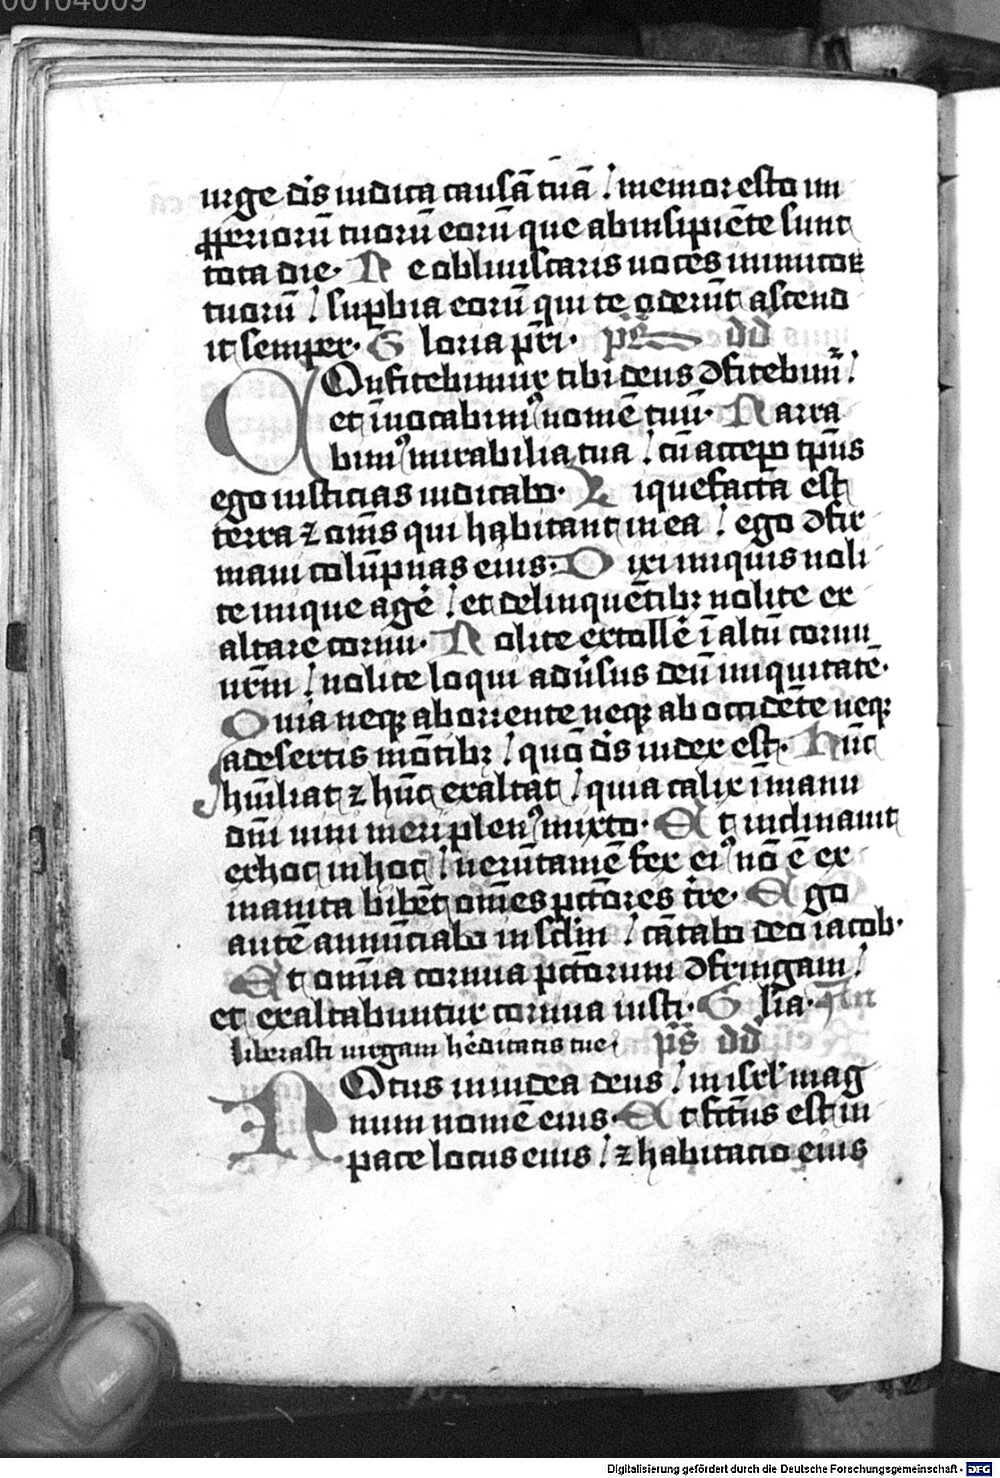 00104009
urge d̄s iudica causā tuā / memor esto im
ꝓp̱eriorū tuorū eorū que ab insipiēte sunt
tota die· Ne obliuiscaris uoces inimicoꝝ
tuorū / supbia eorū qui te oderūt ascend
it semper· Gloria pr̄i· ps̄ dd̄
COnfitebimur tibi deus ꝯfitebim᷑ /
et īuocabimꝰ nomē tuū· Narra
bimꝰ mirabilia tua / cū accepo tp̄us
ego iusticias iudicabo· Liquefacta est
terra ⁊ om̄s qui habitant in ea / ego ꝯfir
maui colūpnas eius· Dixi iniquis noli
te inique agē / et delinquētibꝫ nolite ex
altare cornu· Nolite extollē ī altū cornu
ur̄m / nolite loqui adūsus deū iniquitatē·
Quia neqꝫ ab oriente neqꝫ ab occidēte neqꝫ
a desertis mōtibꝫ / quō d̄s iudex est· Hūc
hūiliat ⁊ hūc exaltat / quia calix ī manu
dn̄i uini meri plenꝰ mixto· Et inclinauit
ex hoc in hoc / uerūtamē fex eiꝰ nō ē ex
inanita bibēt om̄es pctōres tr̄e· Ego
autē annūciabo in sclm̄ / cātabo deo iacob·
Et om̄ia cornua pctōrum ꝯfringam /
et exaltabuntur cornua iusti· Gl̄ia· an̄
liberasti uirgam hēditatis tue ps̄ dd̄
NOtus in iudea deus / in isrl̄ mag
num nomē eius· Et fctūs est in
pace locus eius / ⁊ habitatio eius
Digitalisierung gefördert durch die Deutsche Forschungsgemeinschaft - DFG